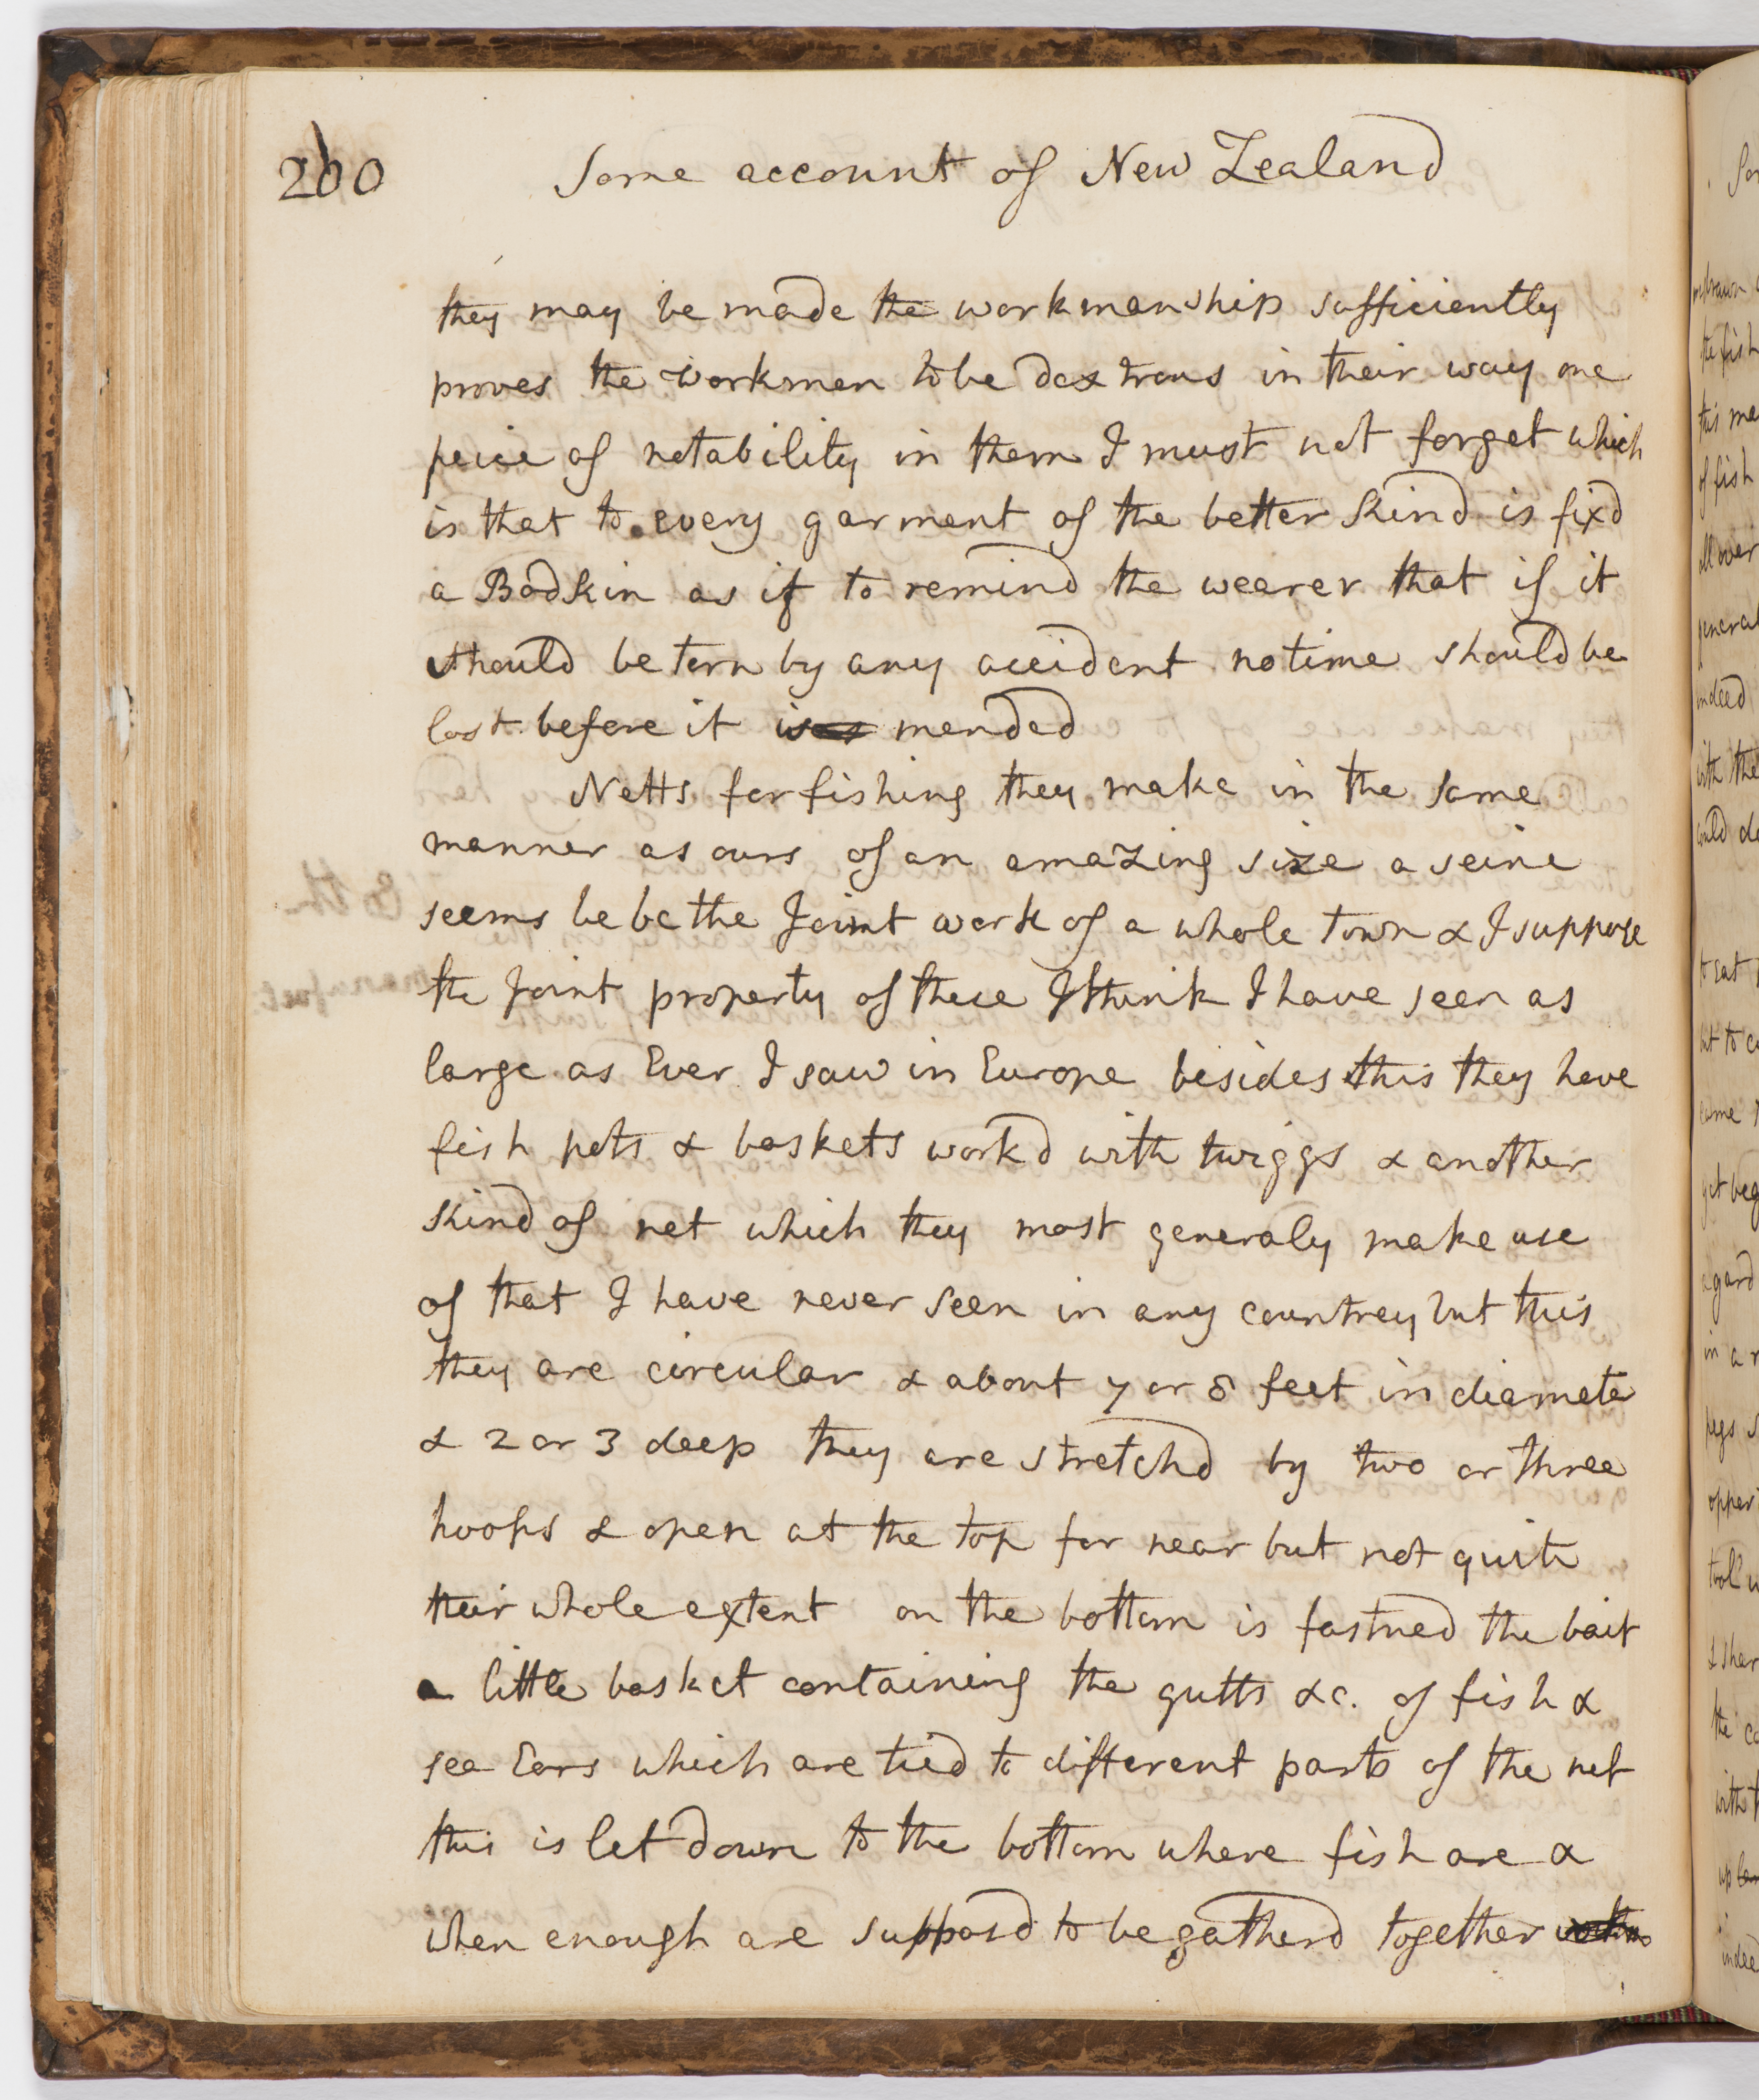 260 Some account of New Zealand
they may be made the workmanship sufficiently
proves the workmen to be dextrous in their way one
peice of notability in them I must not forget which
is that to every garment of the better kind is fixd
a Bodkin as if to remind the wearer that if it
should be torn by any accident no time should be
lost before it is mended
Netts for fishing they make in the same
manner as ours of an amazing size a seine
seems be be the Joint work of a whole town & I suppose
the Joint property of these I think I have seen as
large as Ever I saw in Europe besides this they have
fish pots & baskets workd with twiggs & another
kind of net which they most generaly make use
of that I have never seen in any countrey but this
they are circular & about 7 or 8 feet in diameter
& 2 or 3 deep they are stretchd by two or three
hoops & open at the top for near but not quite
their whole extent on the bottom is fastned the bait
a little basket containing the gutts &c. of fish &
sea Ears which are tied to different parts of the net
this is let down to the bottom where fish are &
when enough are supposd to be gatherd together